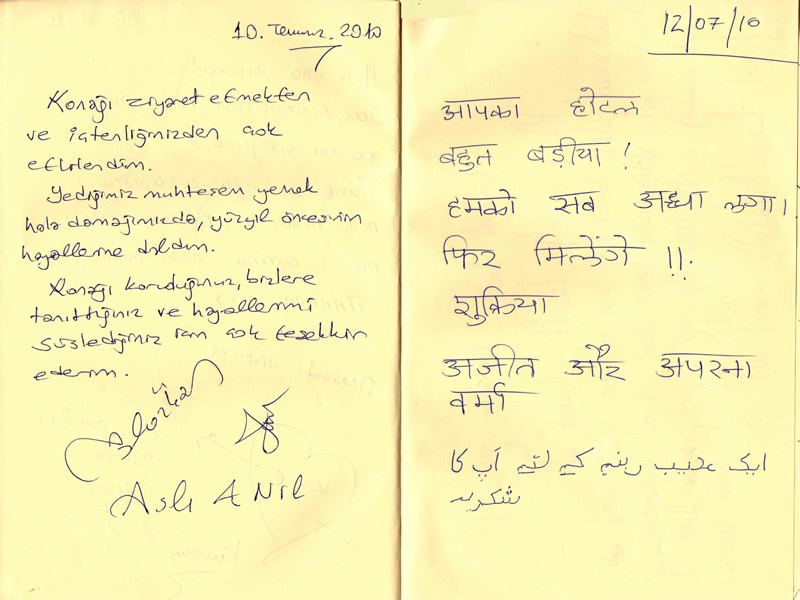 10. Temmuz. 2010
Konağı ziyaret etmekten
ve içtenliğinizden çok
etkilendim.
Yediğimiz muhteşem yemek
hala damağımızda, yüzyıl öncesinin
hayallerine daldım.
Konağı koruduğunuz, bizlere
tanıttığınız ve hayallerimi
süslediğiniz için çok teşekkür
ederim.
Aslı ANIL
12/07/10
आपका होटल
बहुत बड़ीया !
हमको सब अच्छा लगा।
फिर मिलेंगे !!
शुक्रिया
अजीत और अपरना
वर्मा
ایک کے لئے آپ کا
شکریہ